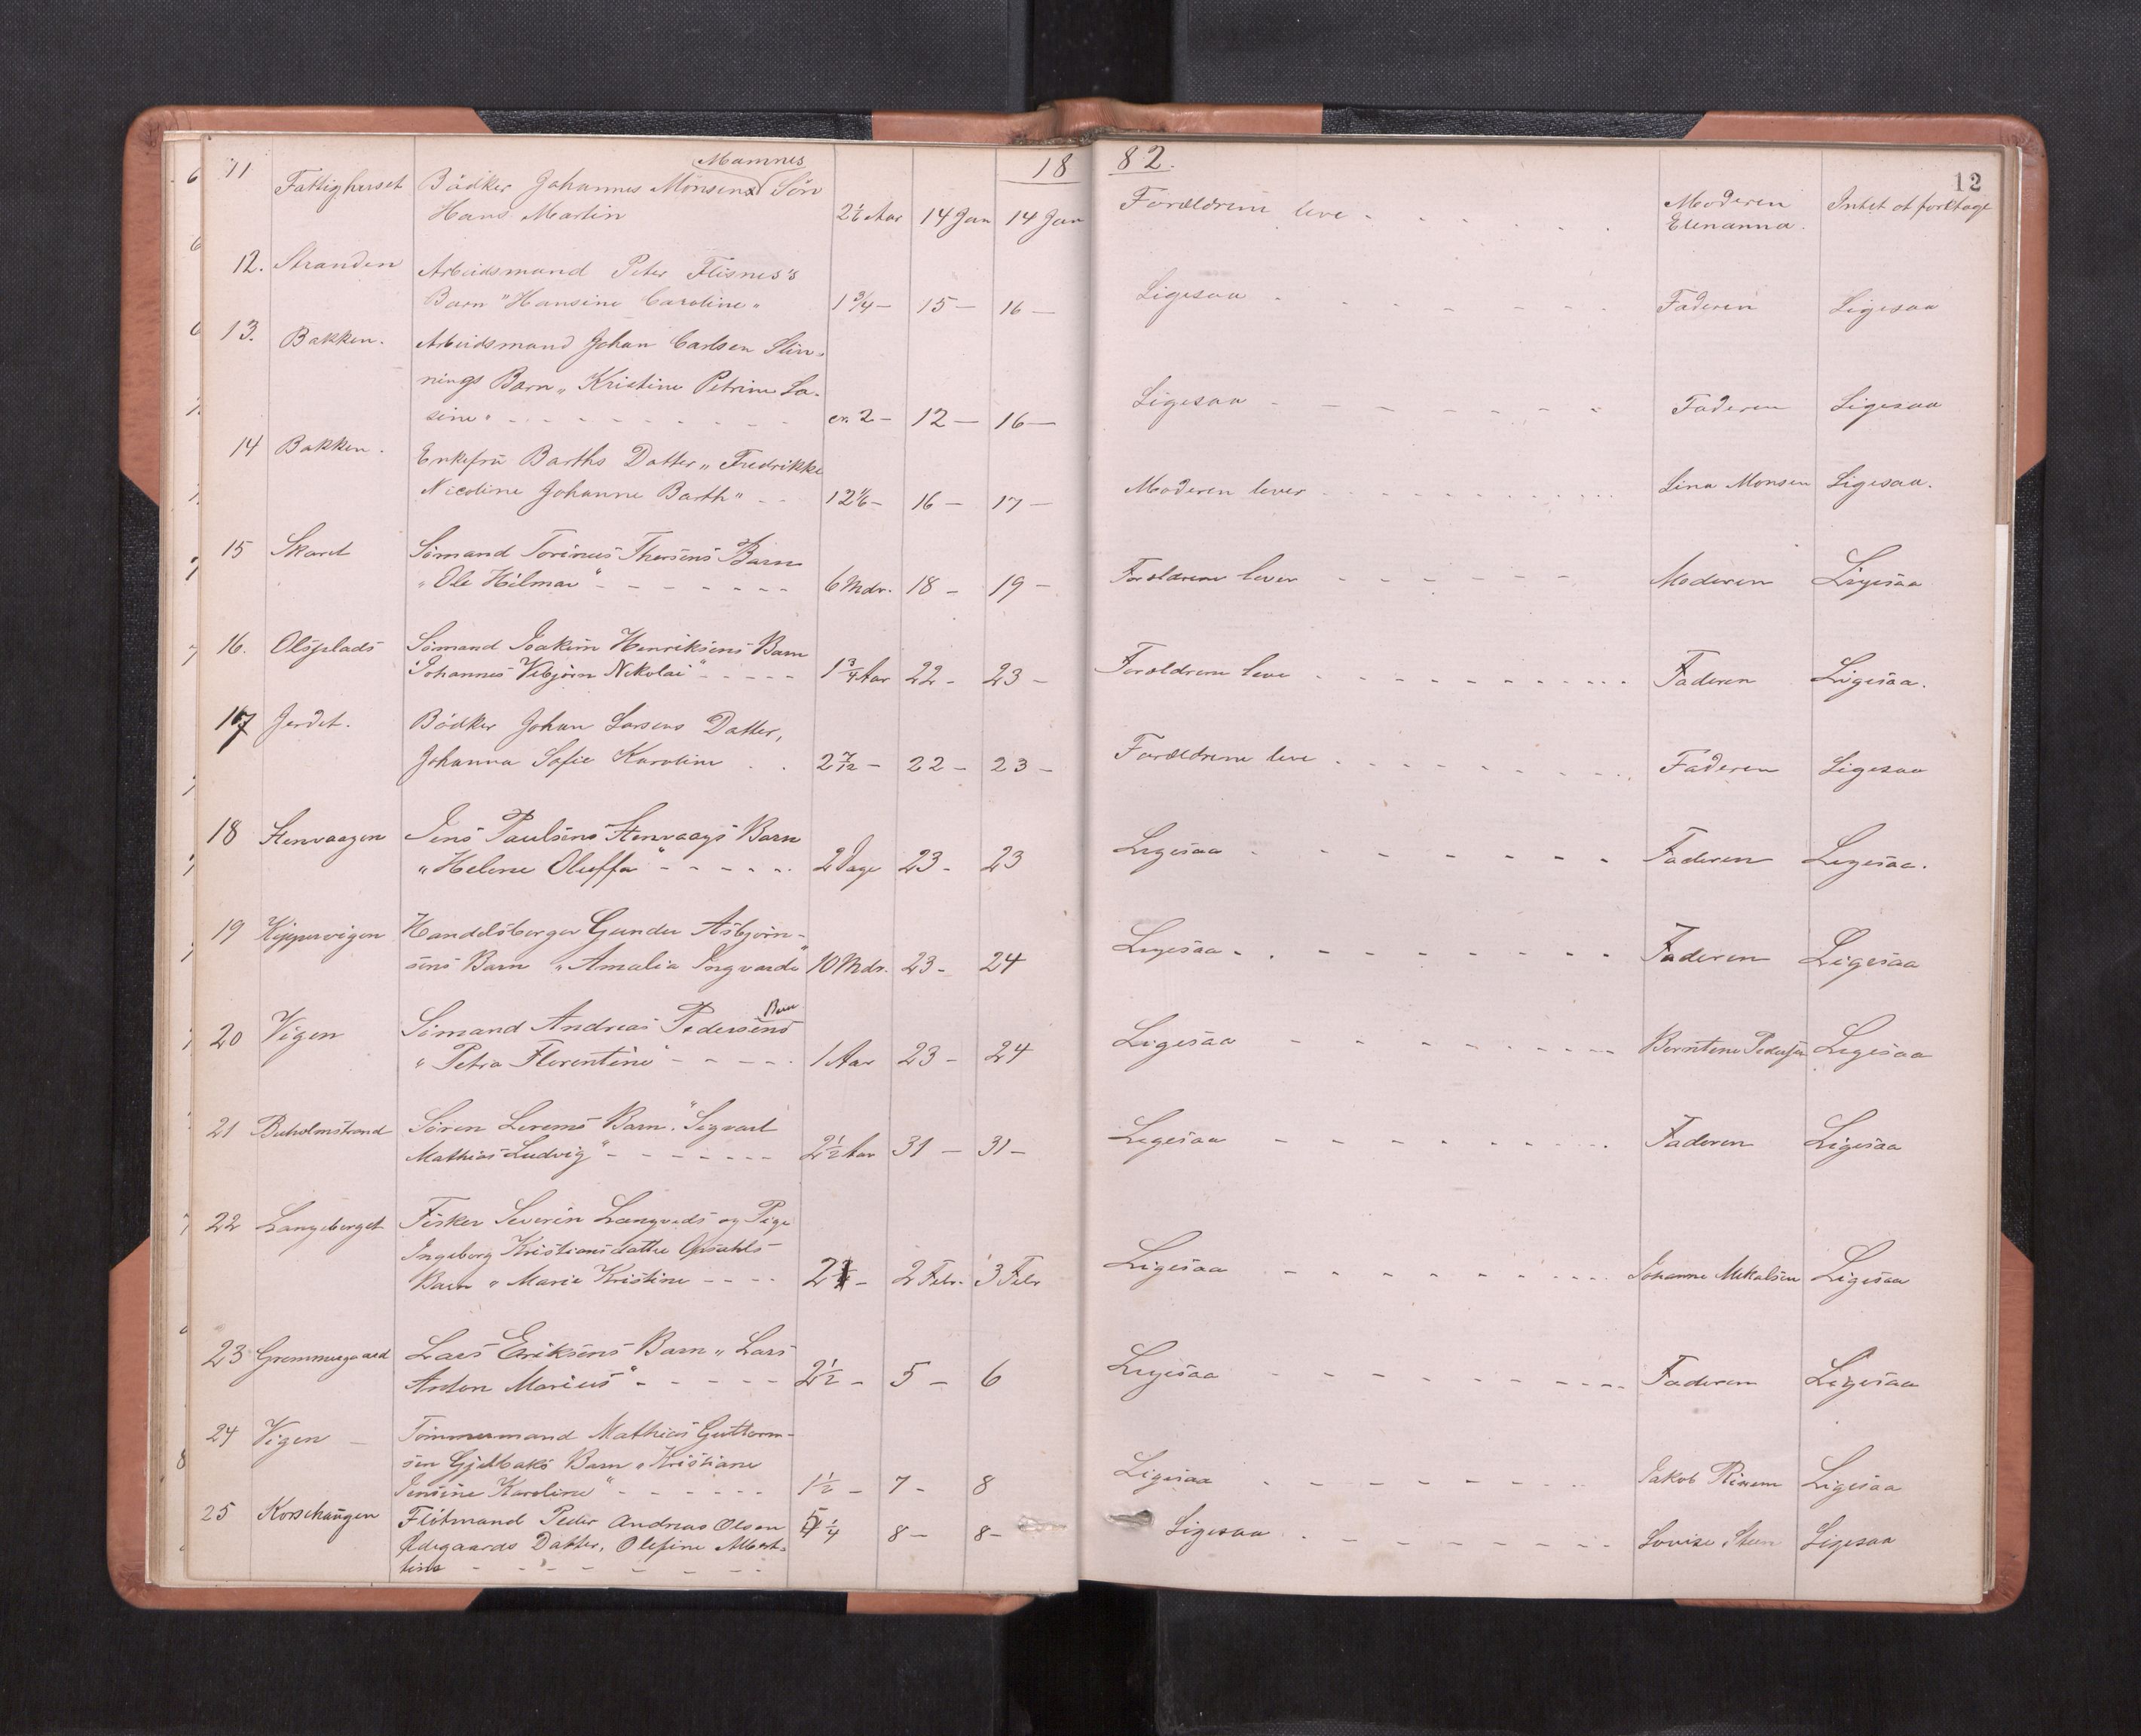 18 82.
12
11 Fattighuset Bödker Johannes Monsens Mamnes Sön
Hans Martin 2 1/6 Aar 14 Jan 14 Jan Forældrene leve Moderen Elenanna. Intet at foretage
12. Stranden Arbeidsmand Peter Flisnes's
Barn "Hansine Caroline" 1 3/4 — 15 — 16 — Ligesaa Faderen Ligesaa
13. Bakken. Arbeidsmand Johan Carlsen Slin-
nings Barn "Kristine Petrine La-
sine" 2 — 12 — 16 — Ligesaa Faderen Ligesaa
14 Bakken. Enkefru Barths Datter "Fredrikke
Nicoline Johanne Barth" 12 1/6 — 16 — 17 — Moderen lever Lina Monsen Ligesaa.
15 Skaret Sömand Torinus Thersens Barn
"Ole Hilmar" 6 Mdr. 18 — 19 — Forældrene lever Moderen Ligesaa
16. Olsplads Sömand Joakim Henriksens Barn
"Johannes Vebjörn Nikolai" 1 3/4 Aar 22 — 23 — Forældrene leve Faderen Ligesaa.
17 Jerdet. Bödker Johan Larsens Datter,
Johanna Sofie Karoline 2 7/12 — 22 — 23 — Forældrene leve Faderen Ligesaa
18 Stenvaagen Jens Paulsens Stenvaags Barn
"Helene Oluffa" 2 Dage 23 — 23 Ligesaa Faderen Ligesaa.
19 Kippervigen Handelsborger Gunder Asbjörn-
sens Barn "Amalia Ingvarda" 10 Mdr. 23 — 24 Ligesaa Faderen Ligesaa
20 Vigen Sömand Andreas Pedersens Barn
"Petra Florentine" 1 Aar 23 — 24 Ligesaa Berntine Pedersen Ligesaa
21 Buholmstrand Sören Lerems Barn "Sigvart
Mathias Ludvig" 2 1/2 Aar 31 — 31 — Ligesaa Faderen Ligesaa
22 Langeberget Fisker Severin Langveds og Pige
Ingeborg Kristiansdatter Opsahls
Barn "Marie Kristine 2 — 2 Febr. 3 Febr Ligesaa Johanne Mikalsen Ligesaa
23 Grommesgaard Lars Eriksens Barn "Lars
Anton Marius" 2 1/2 — 5 — 6 Ligesaa Faderen Ligesaa
24 Vigen — Tömmermand Mathias Guttorm-
sen Gjelbaks Barn "Kristiane
Jensine Karoline" 1 1/2 — 7 — 8 Ligesaa Jakob Rinem Ligesaa
25 Korsehaugen Flötmand Peder Andreas Olsen
Ødegaards Datter, Olefine Albert-
tine 1/4 8 — 8 — Ligesaa Lovise Steen Ligesaa